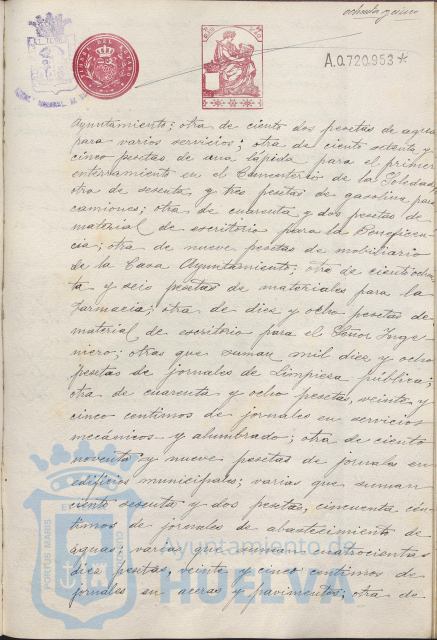 ochenta y cinco
A.0.720.953*
Ayuntamiento; otra de ciento dos pesetas de agua
para varios servicios; otra de ciento ochenta y
cinco pesetas de una lápida para el primer
enterramiento en el Cementerio de la Soledad;
otra de sesenta y tres pesetas de gasolina para
camiones; otra de cuarenta y dos pesetas de
material de escritorio para la Beneficen-
cia; otra de nueve pesetas de mobiliario
de la Casa Ayuntamiento; otra de ciento ochen-
ta y seis pesetas de materiales para la
Farmacia; otra de diez y ocho pesetas de
material de escritorio para el Señor Inge-
niero; otras que suman mil diez y ocho
pesetas de jornales de Limpieza pública;
otra de cuarenta y ocho pesetas, veinte y
cinco centimos de jornales en servicios
mecánicos y alumbrado; otra de ciento
noventa y nueve pesetas de jornales en
edificios municipales; varias que suman
ciento sesenta y dos pesetas, cincuenta cén-
timos de jornales de abastecimiento de
aguas; varias que suman cuatrocientas
diez pesetas, veinte y cinco centimos de
jornales en aceras y pavimentos; otra de
PORTUS MARIS
Ayuntamiento de
HUELVA